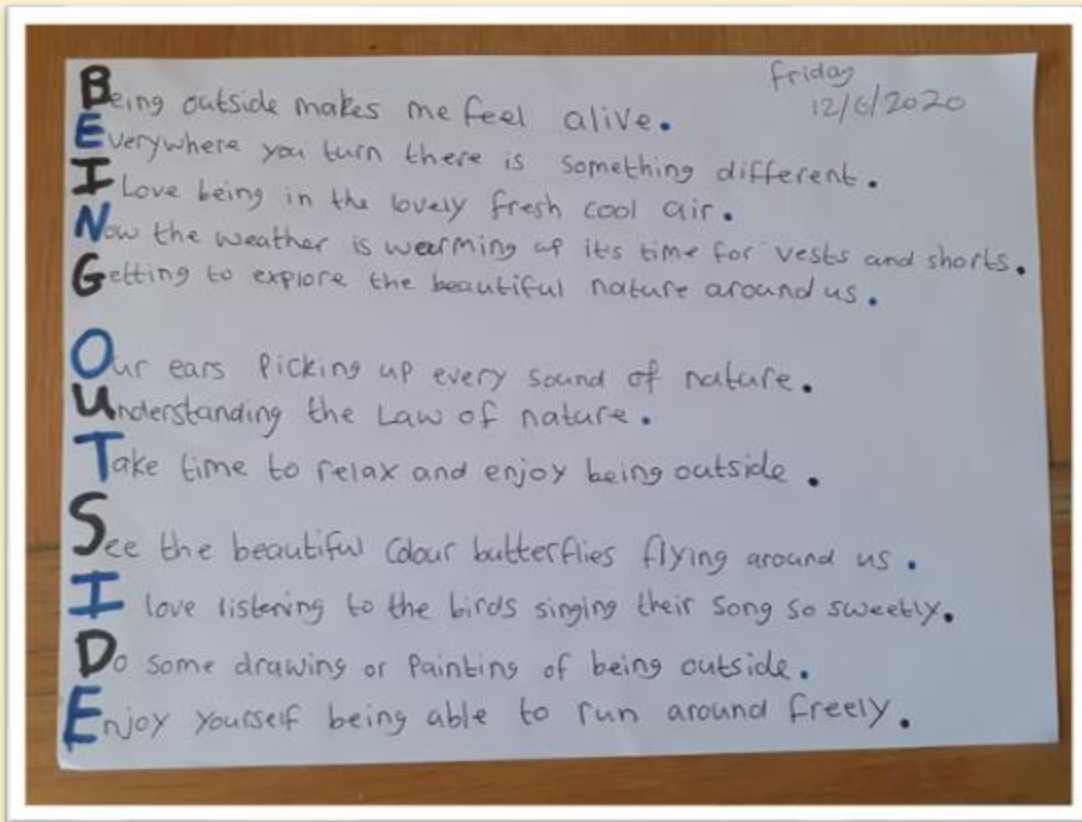 Friday
12/6/2020
Being outside makes me feel alive.
Everywhere you turn there is something different.
I Love being in the lovely fresh cool air.
Now the weather is wearming up it's time for vests and shorts.
Getting to explore the beautiful nature around us.
Our ears Picking up every sound of nature.
Understanding the Law of nature.
Take time to relax and enjoy being outside.
See the beautiful Colour butterflies flying around us.
I love listening to the birds singing their Song so sweetly.
Do some drawing or Painting of being outside.
Enjoy yourself being able to run around freely.